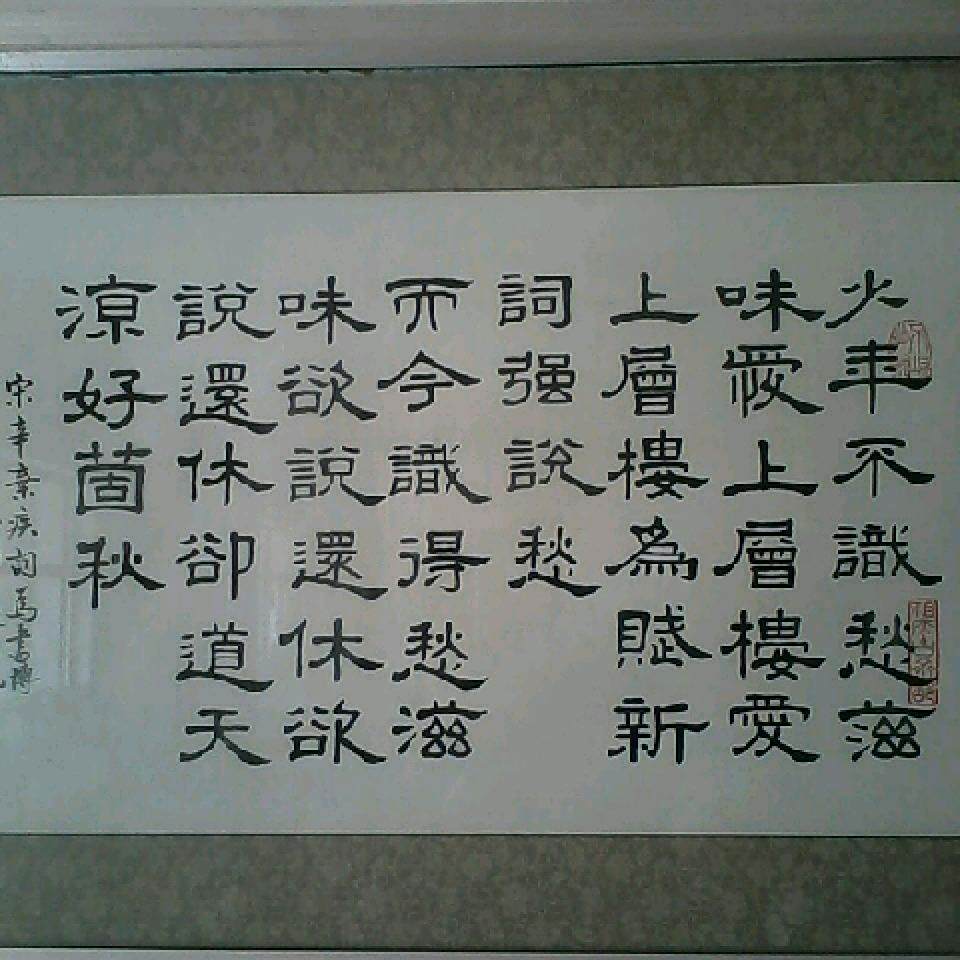 少年不識愁滋
味愛上層樓愛
上層樓為賦新
詞强說愁
而今識得愁滋
味欲說還休欲
說還休卻道天
涼好箇秋
宋辛棄疾詞